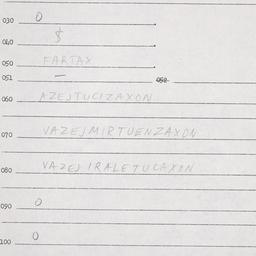 030 0
040 $
050 FARTAX
051 — 052
060 AZEJTUCIZAXON
070 VAZEJMIRTUENZAXON
080 VAZEJ IRALETUCAXON
090 0
100 0